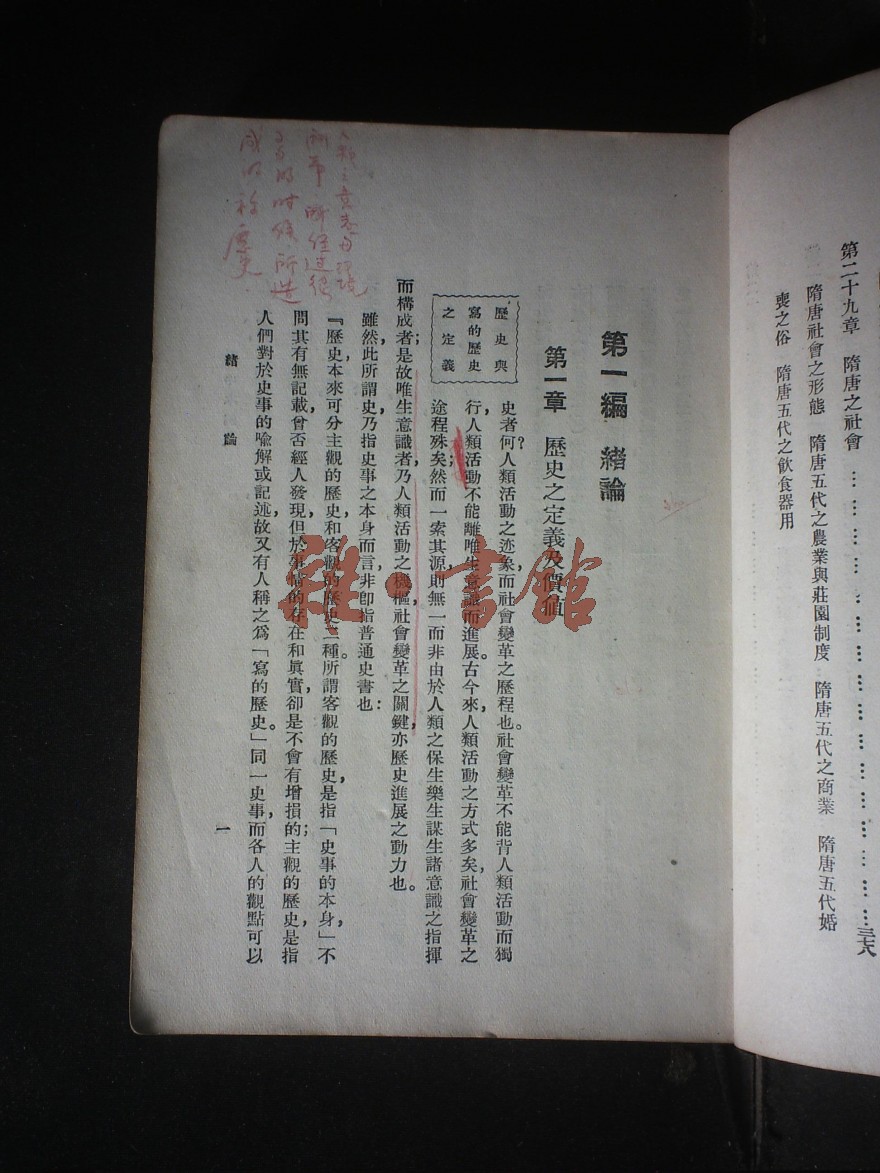 第二十九章　隋唐之社會………………………三七八
隋唐社會之形態　隋唐五代之農業與莊園制度　隋唐五代之商業　隋唐五代婚
喪之俗　隋唐五代之飲食器用
第一編　緒論
第一章　歷史之定義及價值
歷史與
寫的歷史
之定義
史者何？人類活動之迹象而社會變革之歷程也。社會變革不能背人類活動而獨
行，人類活動不能離唯生意識而進展。古今來，人類活動之方式多矣，社會變革之
途程殊矣；然而一索其源，則無一而非由於人類之保生樂生謀生諸意識之指揮
而構成者；是故唯生意識者，乃人類活動之機樞，社會變革之關鍵，亦歷史進展之動力也。
雖然，此所謂史，乃指史事之本身而言，非卽指普通史書也：
『歷史，本來可分主觀的歷史，和客觀的歷史二種。所謂客觀的歷史，是指「史事的本身」，不
問其有無記載，曾否經人發現，但於事情的存在和眞實，卻是不會有增損的；主觀的歷史，是指
人們對於史事的喩解或記述，故又有人稱之爲「寫的歷史。」同一史事，而各人的觀點可以
緒　論
一
人類之意志與環境
所造
成的稱歷史
雜·書館